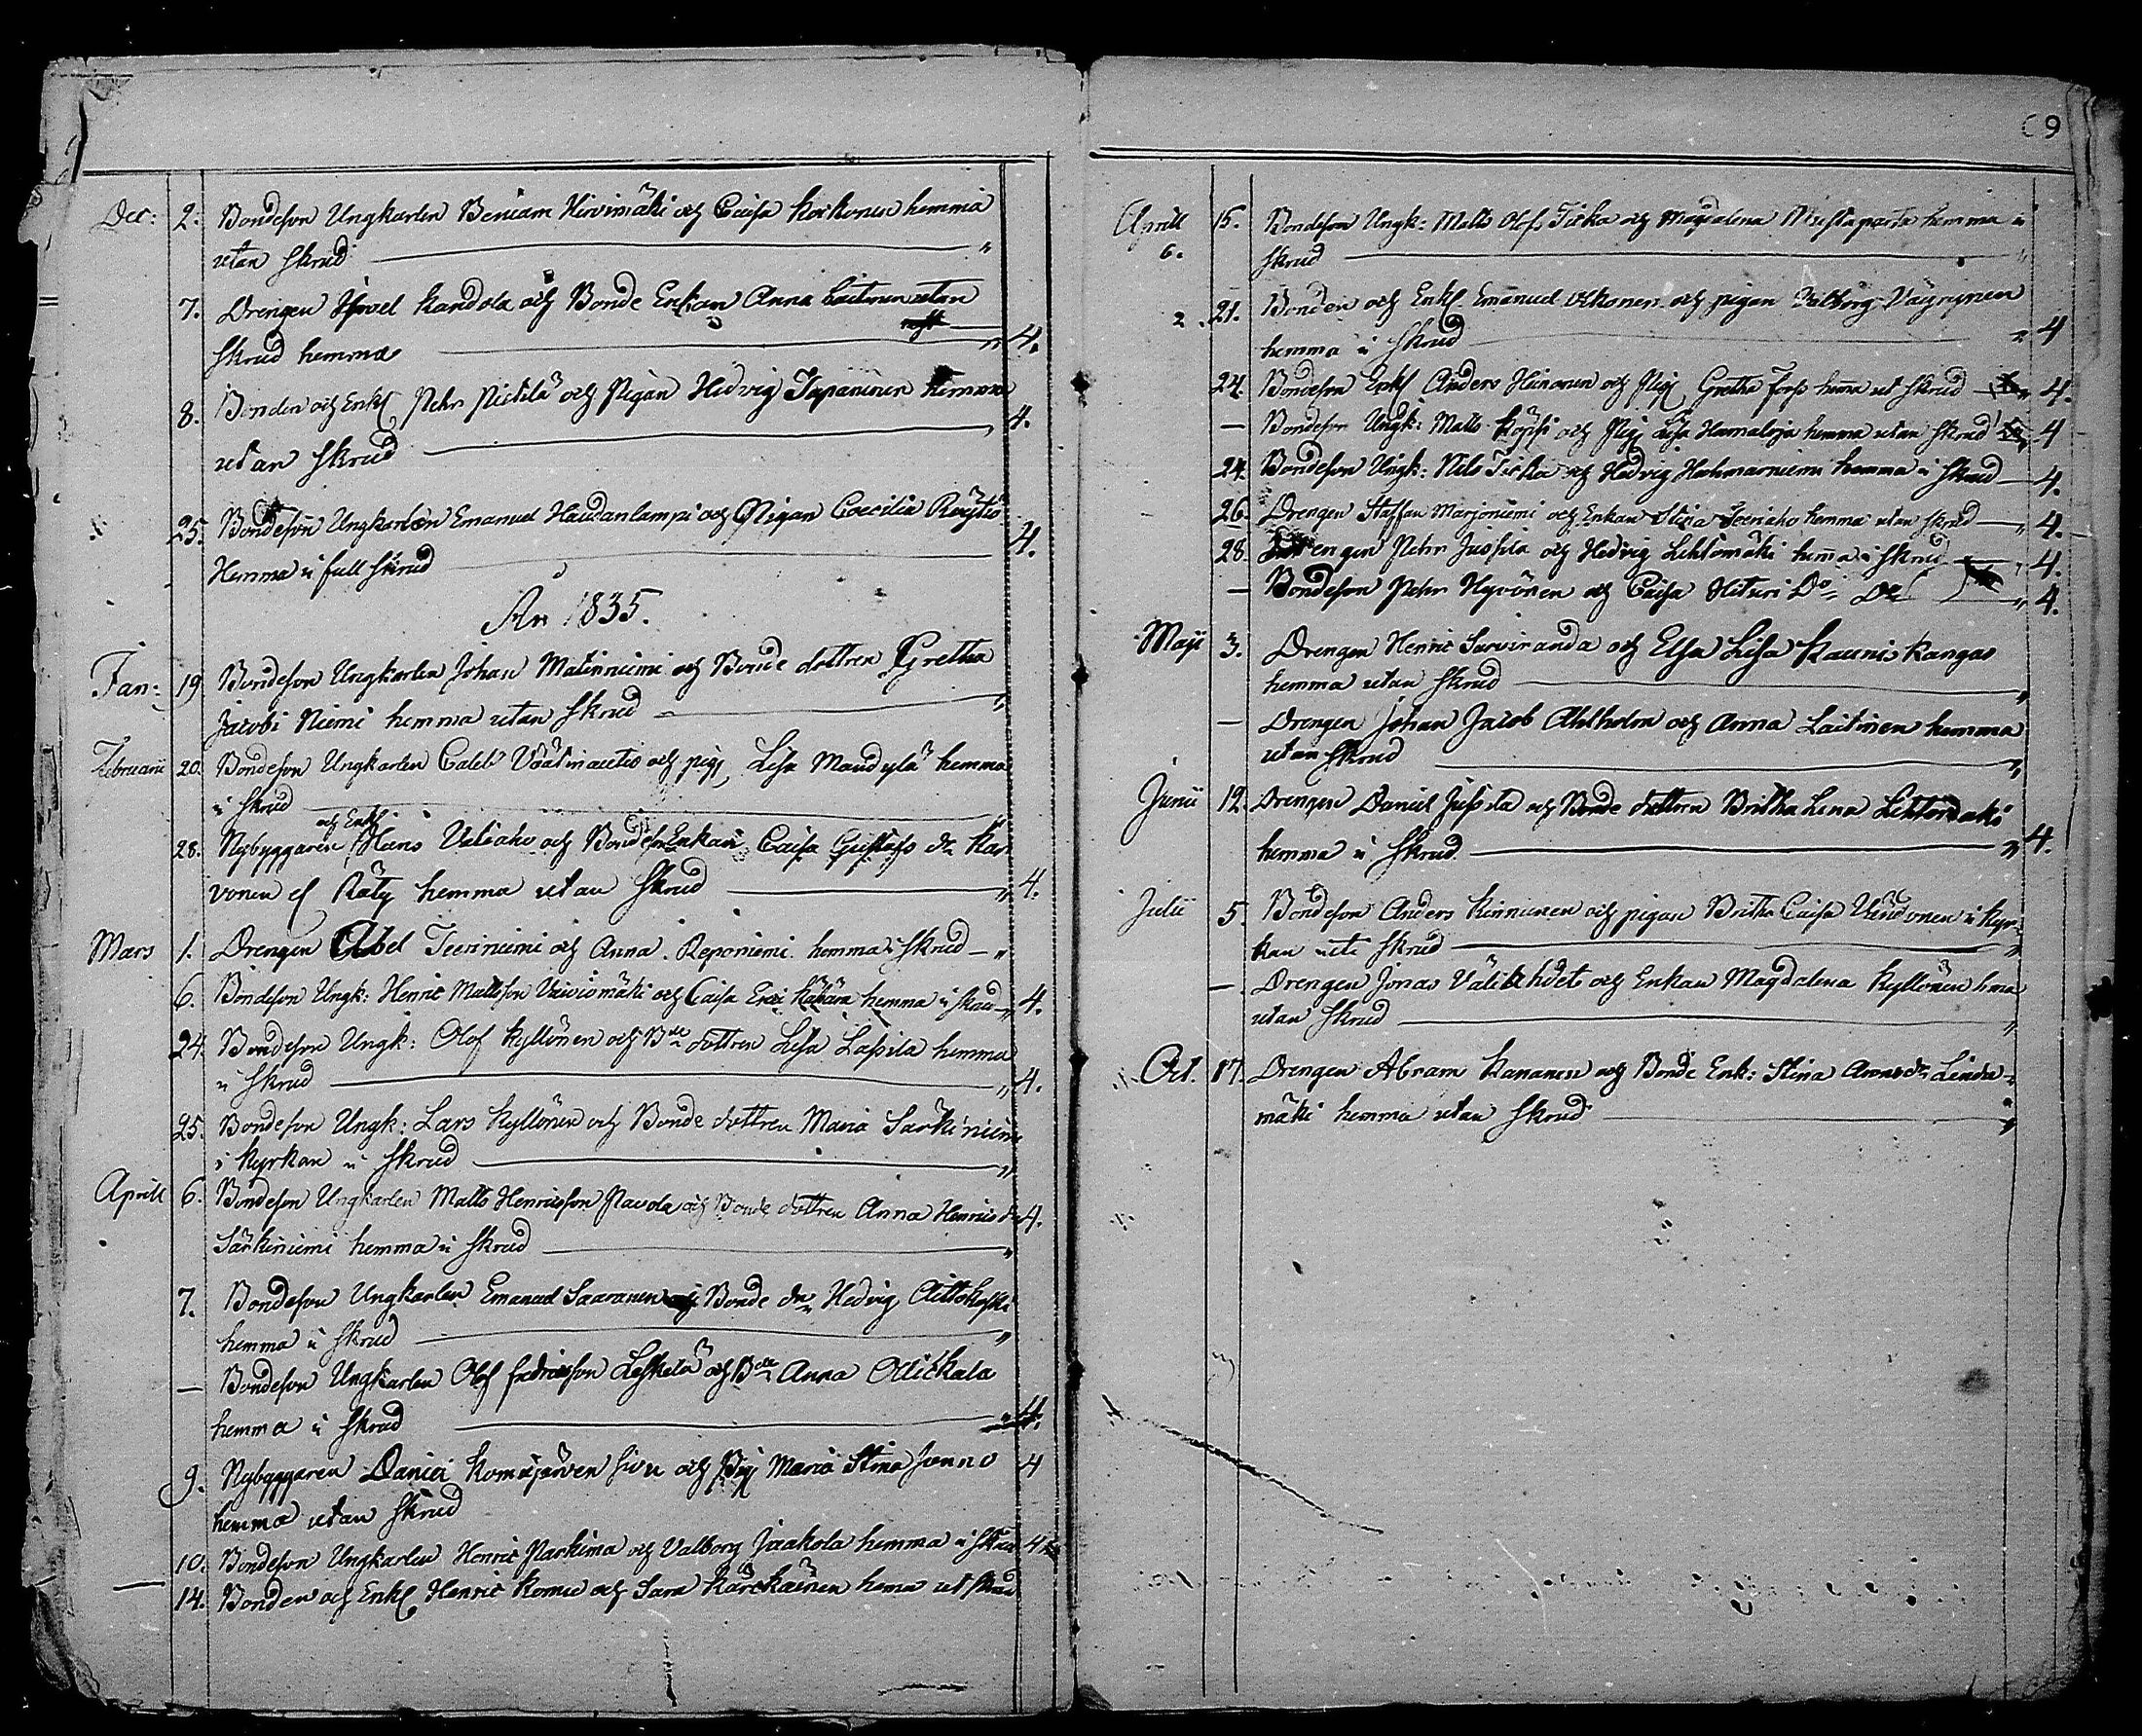 Dec: 2. Bondeson Ungkarlen Beniam Hirvimäki och Caisa Korhonen hemma
utan Skrud "
7. Drengen Israel Kandola och Bonde Enkan Anna Laitinen utan
Skrud hemma " 4.
8. Bonden och Enkl Pehr Pistilä och Pigan Hedvig Tapaninen hemma
utan Skrud " 4.
25. Bondeson Ungkarlen Emanuel Haudanlampi och Pigan Coecilia Röytiö
Hemma i full skrud 4.
År 1835.
Jan: 19 Bondeson Ungkarlen Johan Matinniemi och Bonde dottren Gretha
Jacobi Niemi hemma utan Skrud "
Februarii 20. Bondeson Ungkarlen Calel Väätinautio och pigj Lisa Mandylä hemma
i Skrud "
och Enkl
28. Nybyggaren Hans Valiaho och Bondeson Enkan Caisa Gustafs dr Kar
vonen el Räty hemma utan Skrud " 4.
Mars 1. Drengen Abel Teeriniemi och Anna Reponiemi hemma i Skrud "
6. Bondeson Ungk: Henric Mattsson Väivimäki och Caisa hemma i skrud " 4.
24. Bondeson Ungk: Olof Kyllönen och Bde dottren Lisa Lassila hemma
i Skrud " 4.
25. Bondeson Ungk: Lars Kyllönen och Bonde dottren Maria Särkiniemi
i Kyrkan i Skrud "
Aprill 6. Bondeson Ungkarlen Matts Henricsson Pavola och Bonde dottren Anna Henrics dr 4.
Särkiniemi hemma i Skrud "
7. Bondeson Ungkarlen Emanuel Saaranen och Bonde dr Hedvig Aittokoski
hemma i Skrud "
— Bondeson Ungkarlen Olof Fredricsson Leskelä och Bde Anna Ollickala
hemma i Skrud " 4.
9. Nybyggaren Daniel Komujärven och Pigj Maria Stina Junno 4
hemma utan Skrud
10. Bondeson Ungkarlen Henric Parkima och Valborg Jaakola hemma i Skrud 4
14. Bonden och Enkl Henric Komu och Sara Kärckäinen hema ut skrud
69
Aprill 15. Bondeson Ungk: Matts Olofs Tiikka och Magdalena Mustaparta hemma i
6. Skrud "
2. 21. Bonden och Enkl Emanuel Ahonen och pigan Valborg Väyrynen
hemma i Skrud " 4
24. Bondeson Enkl Anders Heinonen och Pigj Gretha Fors hema ut skrud 4.
— Bondeson Ungk: Matts Köpsi och Pigj Lisa Harnaloja hemma utan skrud 4
24. Bondeson Ungk: Nils Tiikka och Hedvig Hahmarniemi hemma i skrud 4.
26. Drengen Staffan Marjoniemi och Enkan Stina Teeriaho hemma utan skrud " 4.
28. Drengen Pehr Jussila och Hedvig Lehtomäki hema i skrud " 4.
— Bondeson Pehr Hyvönen och Caisa Hituri Do Do " 4.
Maji 3. Drengen Henric Sarviranda och Elsa Lisa Kauniskangas
hemma utan Skrud "
— Drengen Johan Jacob Ahlholm och Anna Laitinen hemma
utan Skrud "
Junii 12. Drengen Daniel Jussila och Bonde dottren Britha Lena Lehtomäki
hemma i Skrud " 4.
Julii 5. Bondeson Anders Kinnunen och pigan Britha Caisa i Kyr-
kan utan Skrud "
— Drengen Jonas och Enkan Magdalena Kyllönen hma
utan Skrud "
Oct. 17. Drengen Abram Kananen och Bonde Enk: Stina dr Linda-
mäki hemma utan Skrud "